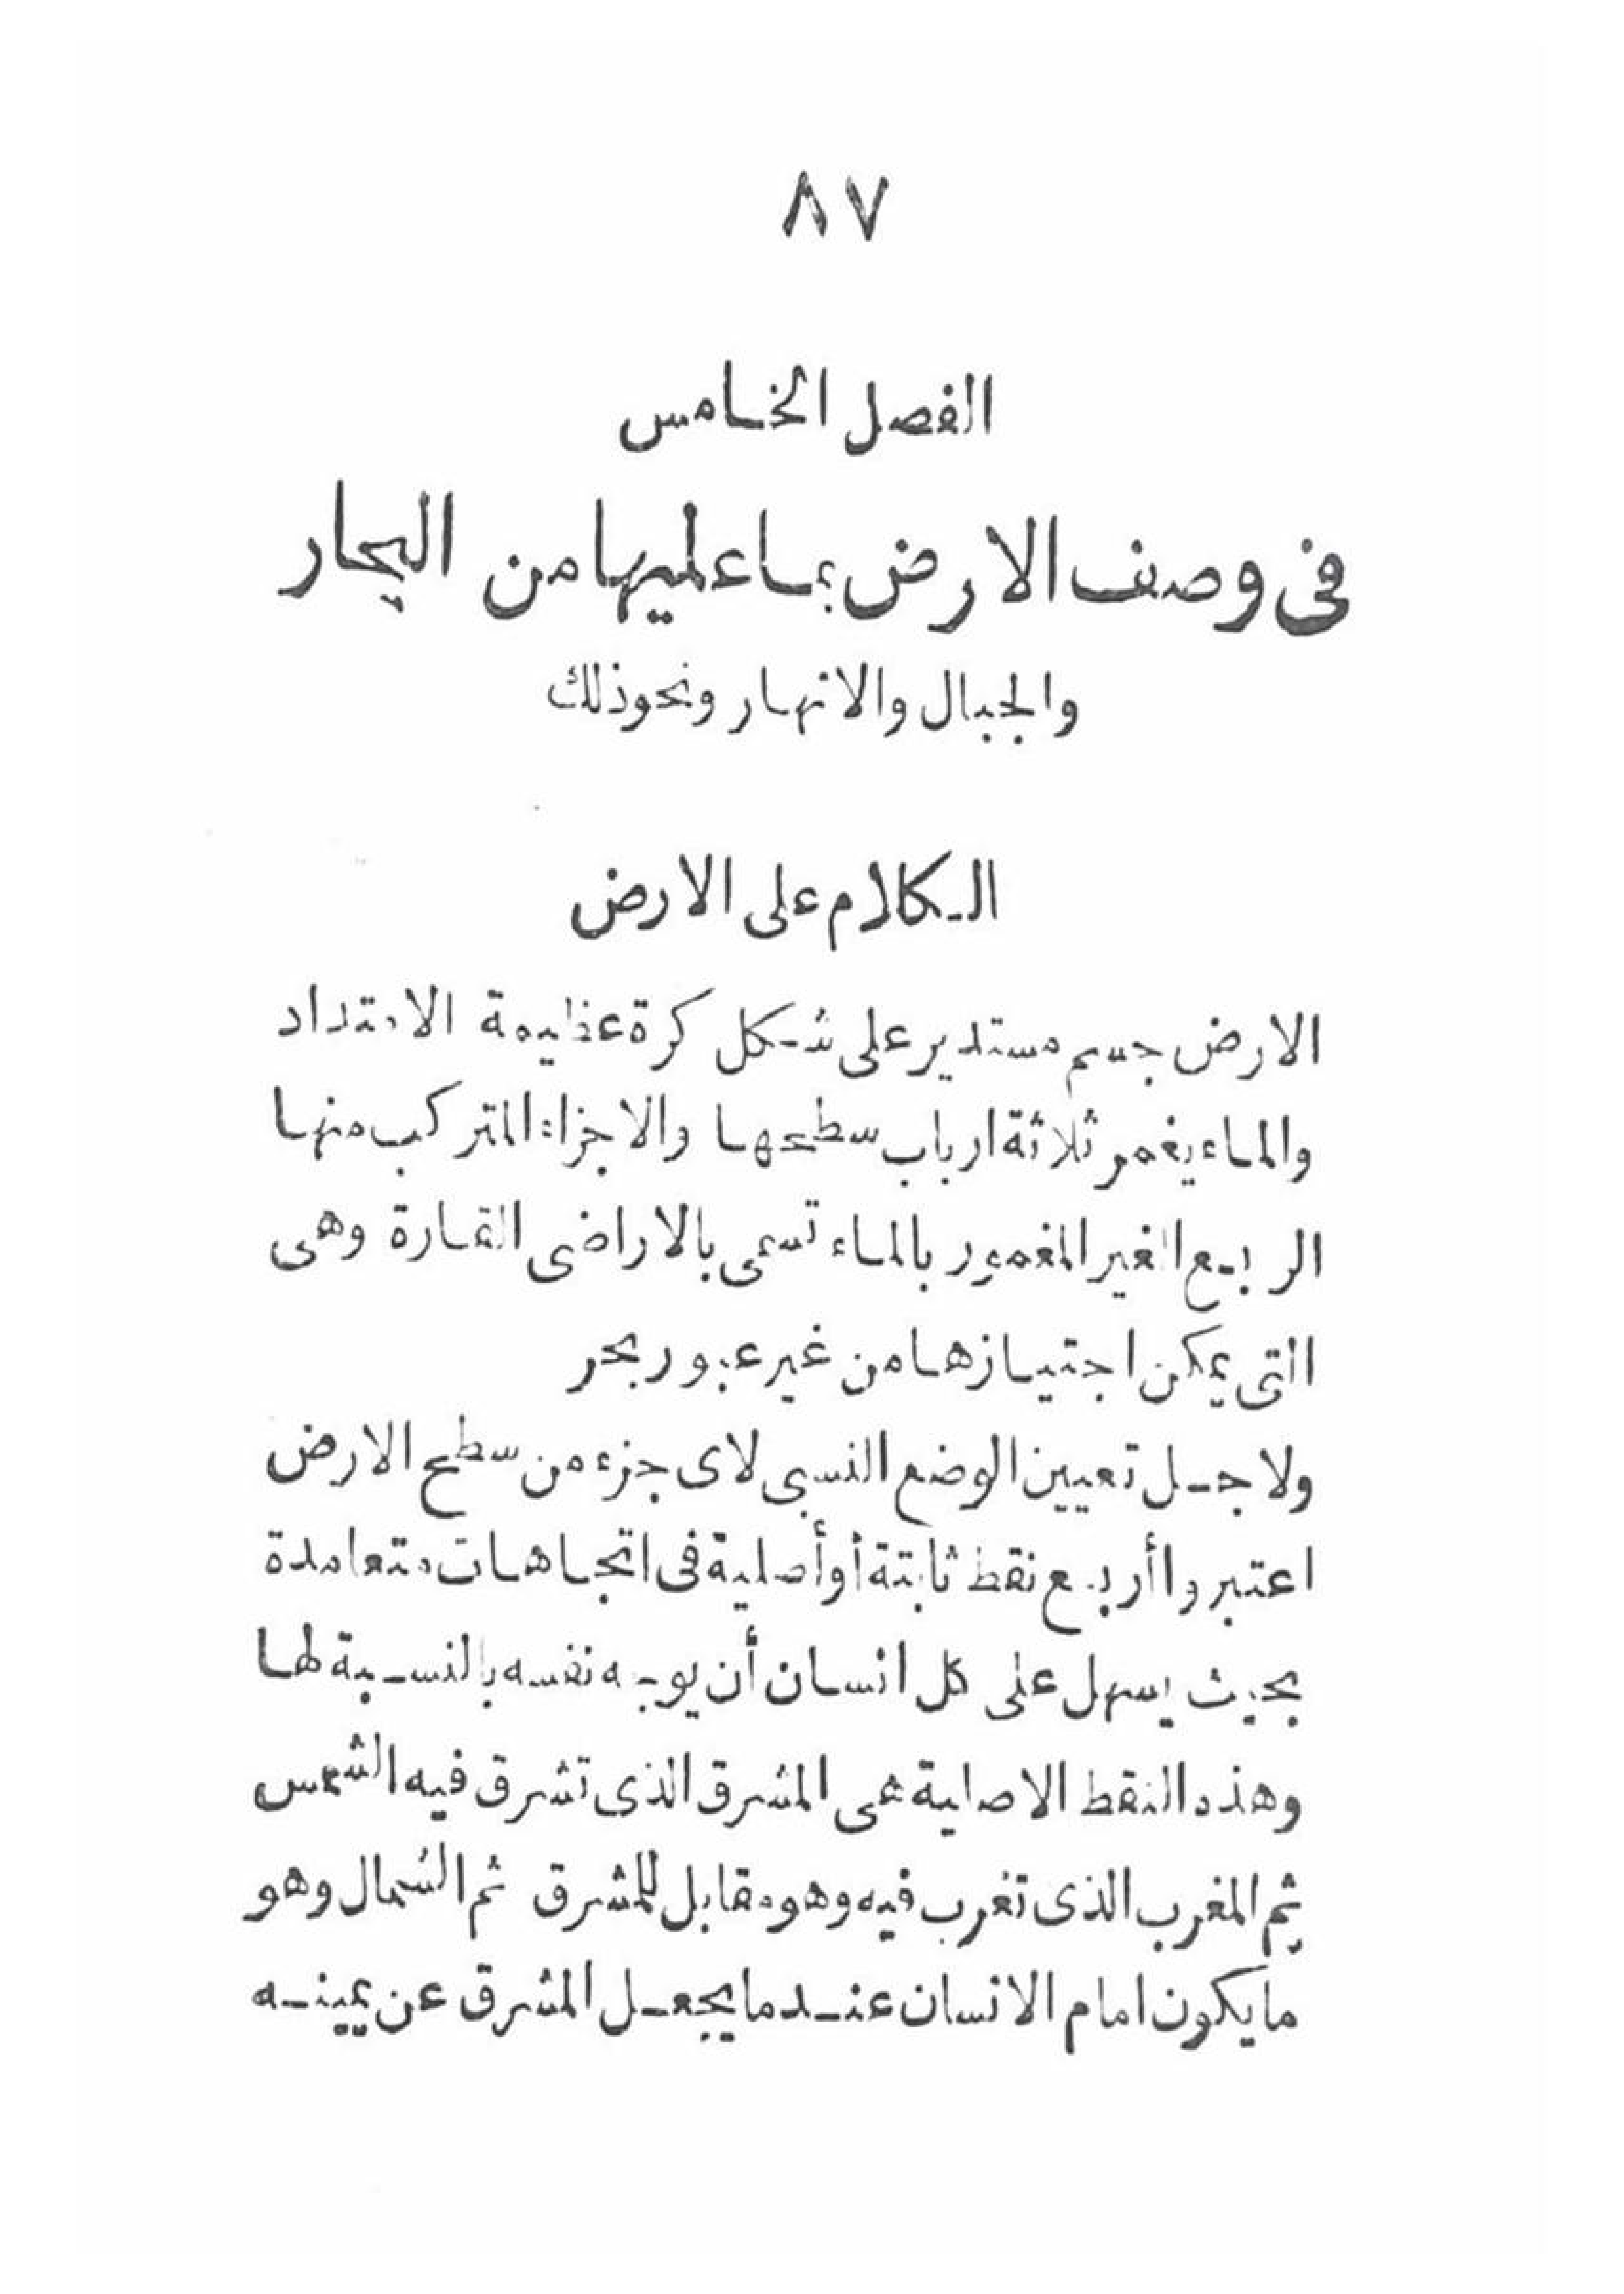 ٨٧
الفصل الخامس
فى وصف الارض بما عليها من البحار
والجبال والانهار ونحو ذلك
الكلام على الارض
الارض جسم مستدير على شكل كرة عظيمة الامتداد
والماء يغمر ثلاثة ارباب سطحها والاجزاء المتركب منها
الربع الغير المغمور بالماء تسمى بالاراضى القارة وهى
التى يمكن اجتيازها من غير عبور بحر
ولاجل تعيين الوضع النسبى لاى جزء من سطح الارض
اعتبروا أربع نقط ثابتة أو أصلية فى اتجاهات متعامدة
بحيث يسهل على كل انسان أن يوجه نفسه بالنسبة لها
وهذه النقط الاصلية هى المشرق الذى تشرق فيه الشمس
ثم المغرب الذى تغرب فيه وهو مقابل للمشرق ثم الشمال وهو
ما يكون امام الانسان عند ما يجعل المشرق عن يمينه